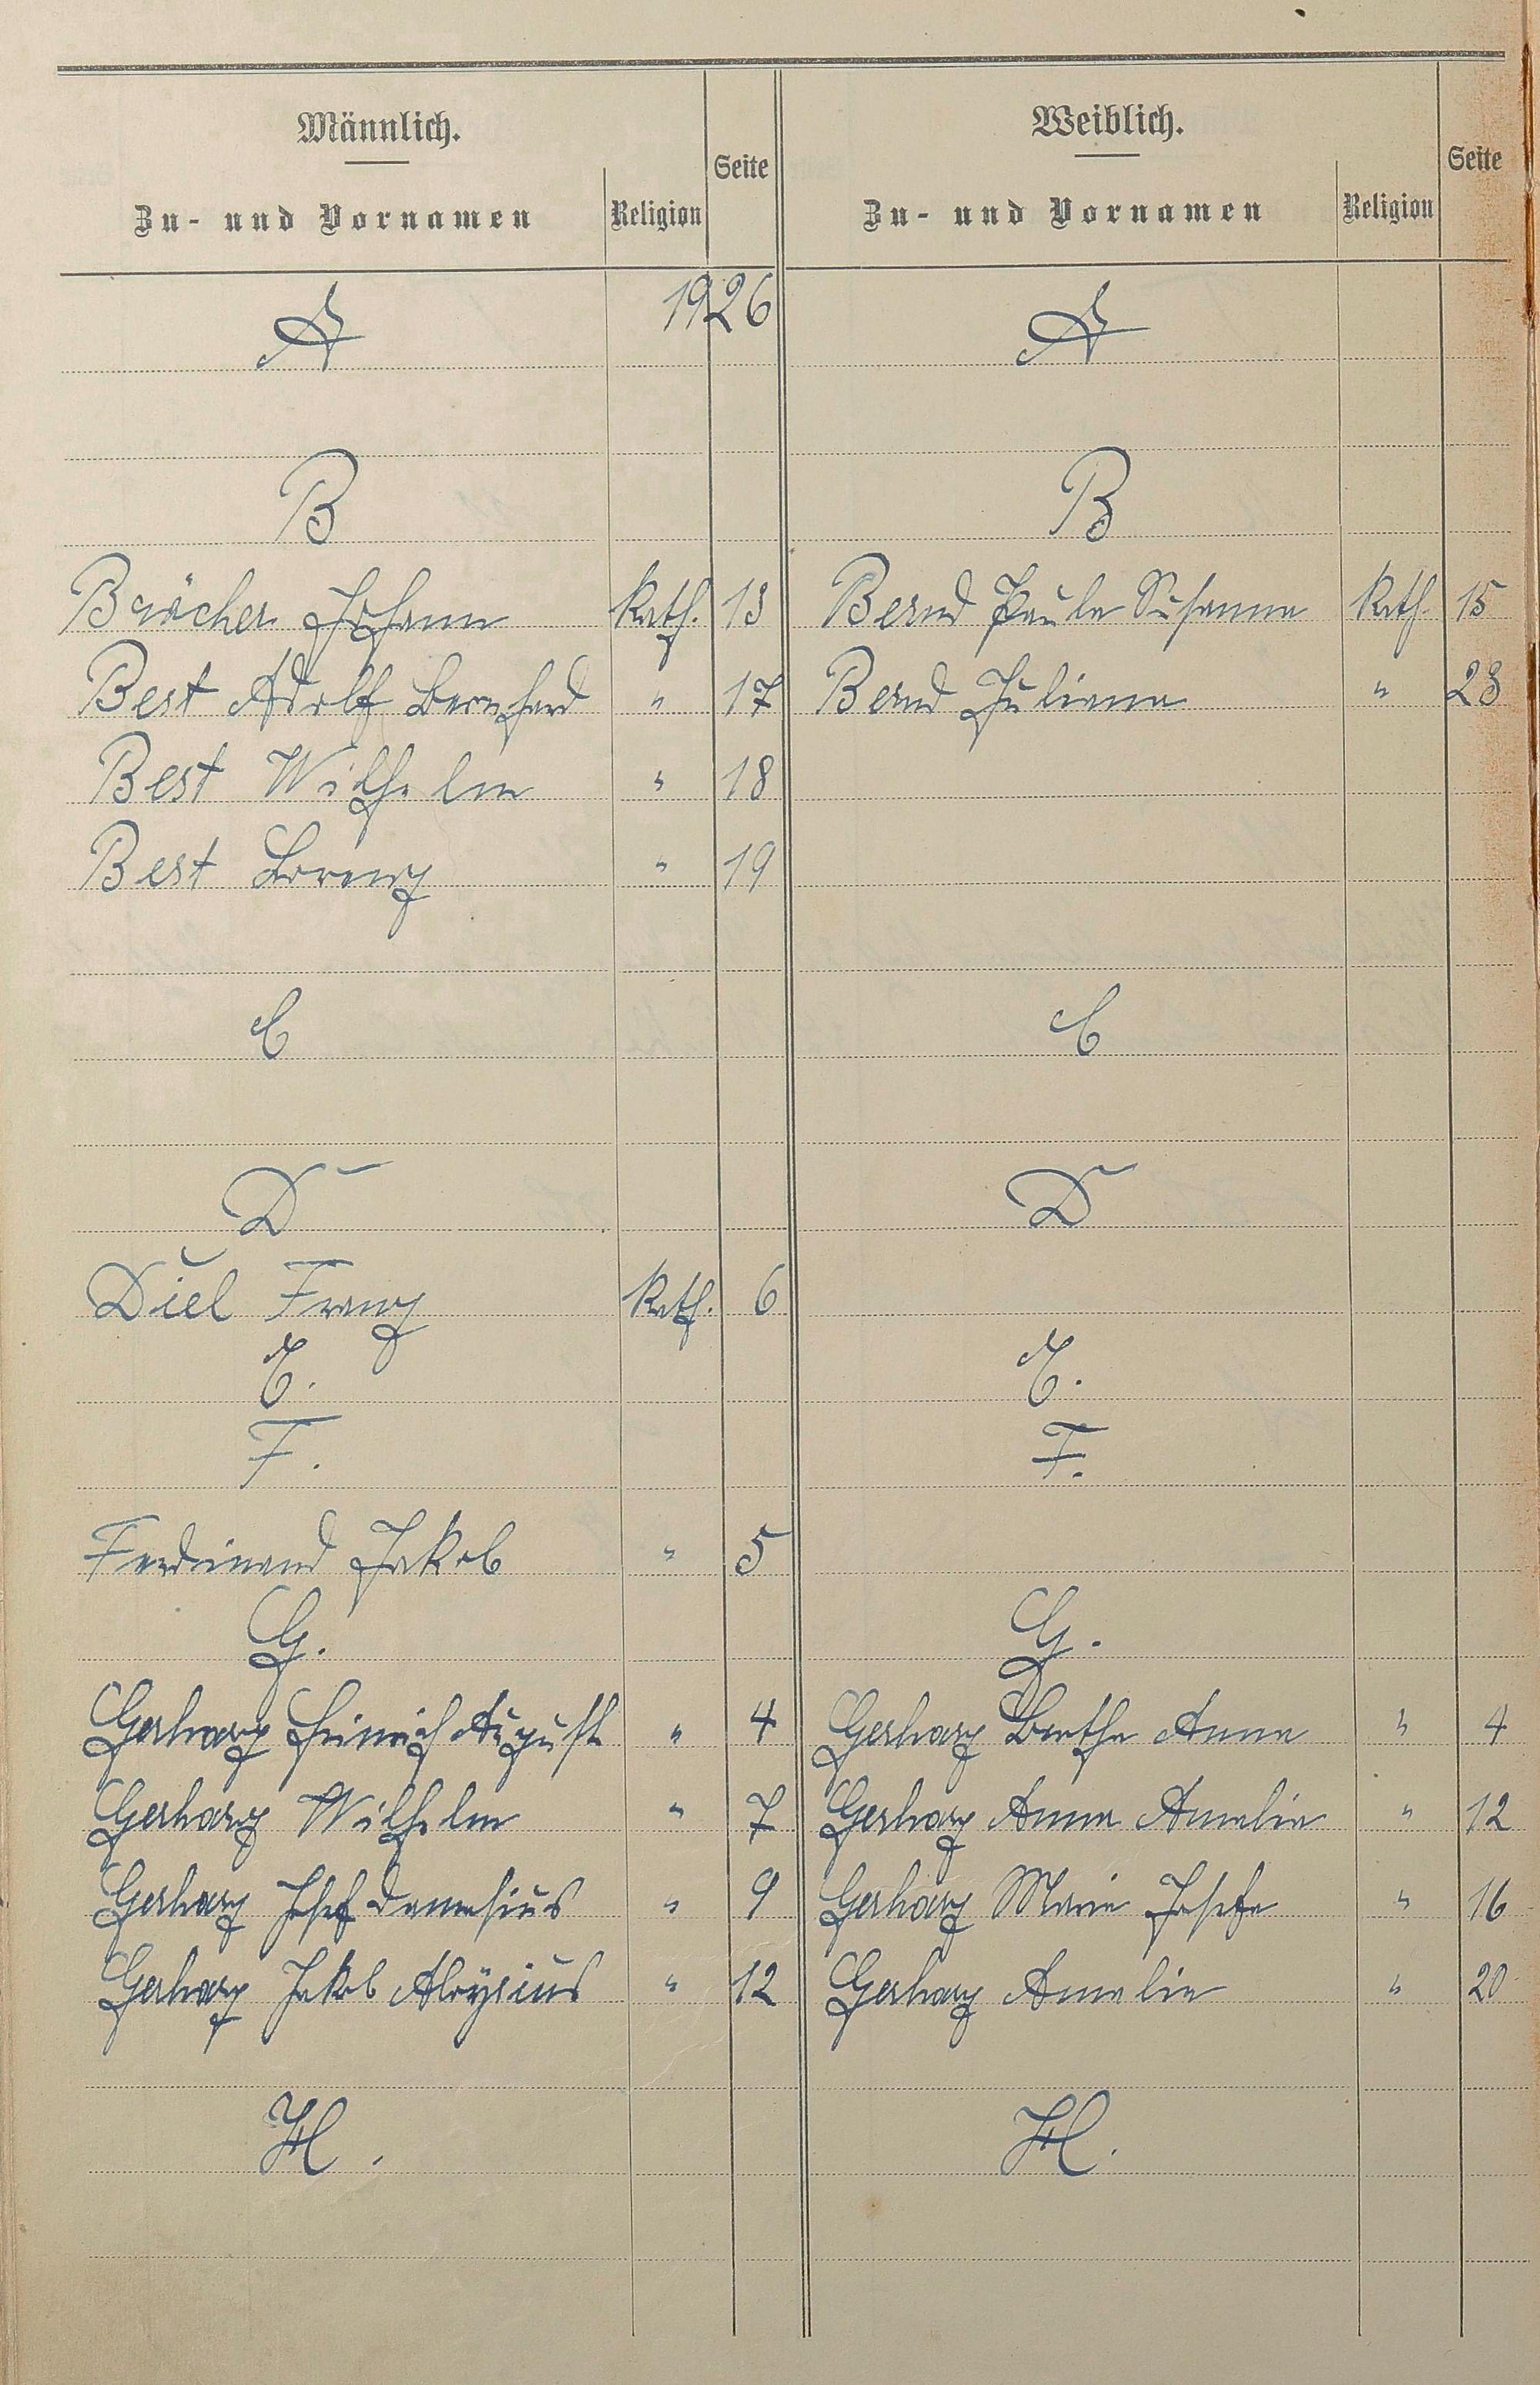 Männlich.
Zu- und Vornamen Religion Seite
Weiblich.
Zu- und Vornamen Religion Seite
1926
A A
B B
Bröcher Johann Kath. 13 Bernd Paula Susanna Kath. 15
Best Adolf Bernhard " 17 Bernd Juliana " 23
Best Wilhelm " 18
Best Lorenz " 19
C C
D D
Diel Franz Kath. 6
E. E.
F. F.
Ferdinand Jakob " 5
G. G.
Gerharz Heinrich August " 4 Gerharz Bertha Anna " 4
Gerharz Wilhelm " 7 Gerharz Anna Amalia " 12
Gerharz Josef Damasius " 9 Gerharz Maria Josefa " 16
Gerharz Jakob Aloÿsius " 12 Gerharz Amalia " 20
H. H.